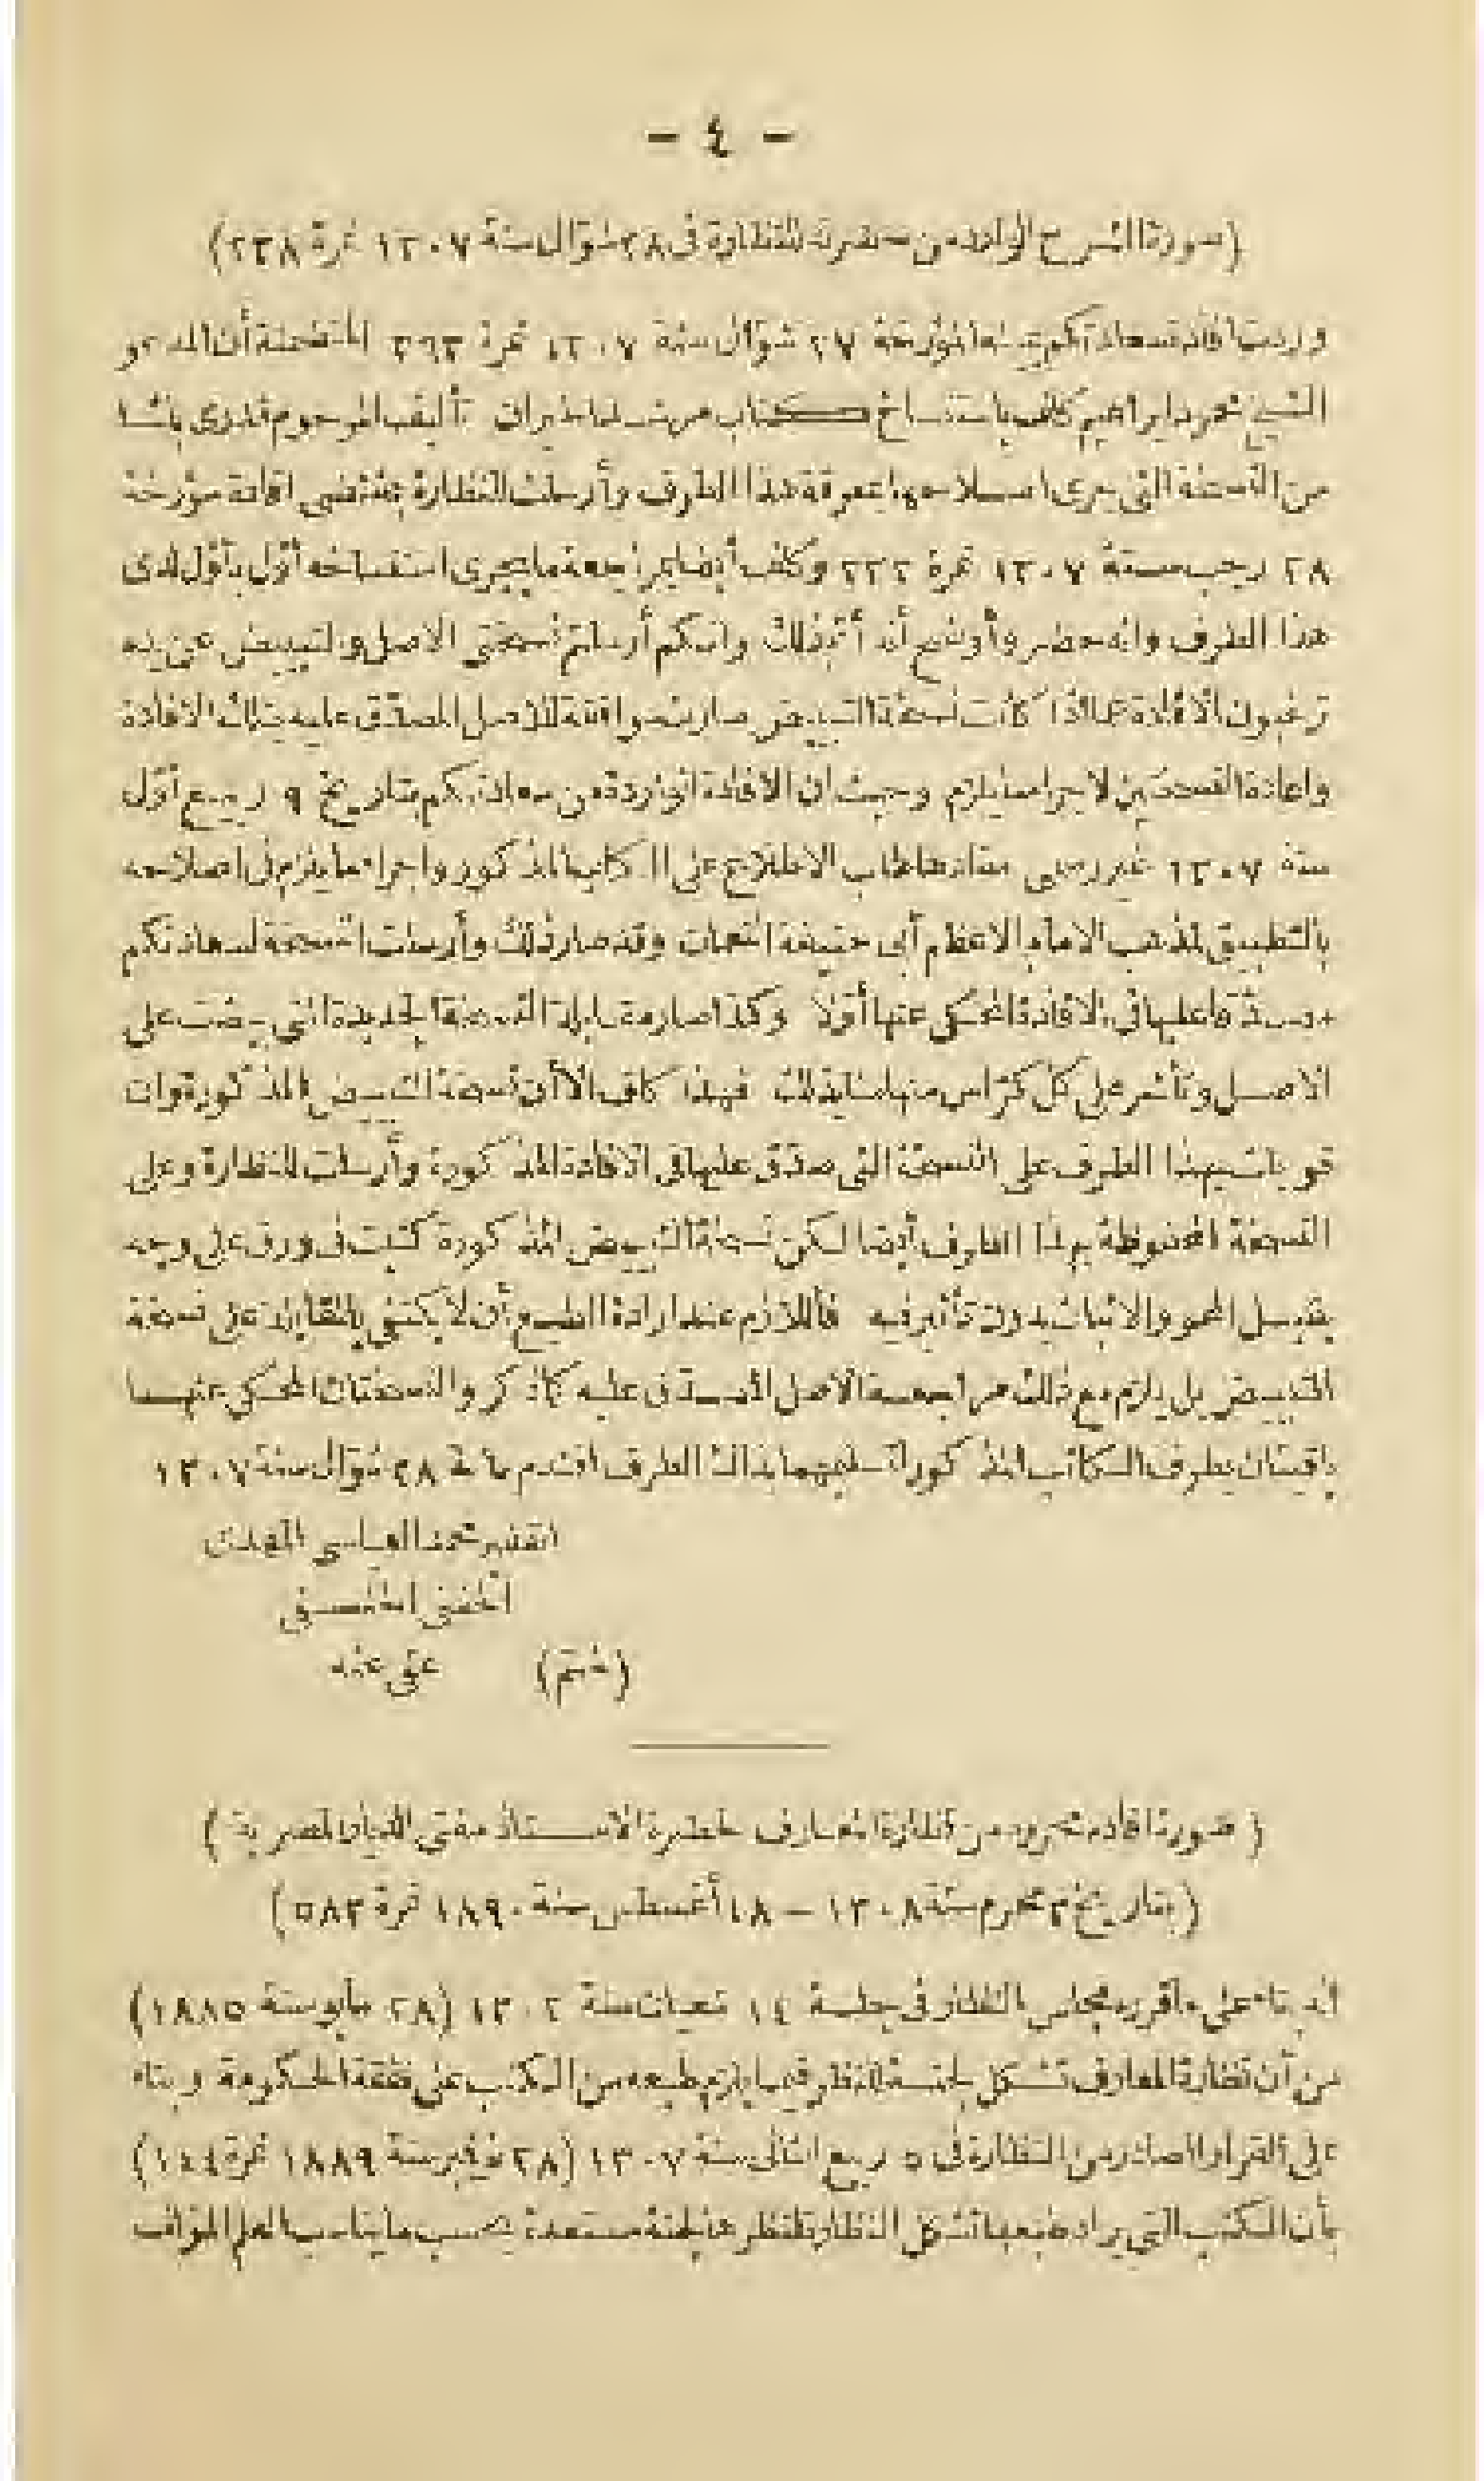 - ٤ -
(صورة الشرح الوارد من حضرته للنظارة فى ٢٨ شوال سنة ١٣٠٧ نمرة ٢٣٨)
وردت افادة سعادتكم المؤرخة ٢٧ شوال سنة ١٣٠٧ نمرة المتضمنة أن المدعو
الشيخ محمد ابراهيم كلف باستنساخ كتاب مرشد الحيران تأليف المرحوم قدرى باشا
من النسخة التى جرى اصلاحها بمعرفة هذا الطرف وأرسلت للنظارة بمقتضى افادة مؤرخة
٢٨ رجب سنة ١٣٠٧ نمرة ٢٢٢ وكلف أيضا بمراجعة ما يجرى استنساخه أوّل بأوّل لدى
هذا الطرف وانه حضر وأوضح أنه أتم ذلك وانكم أرسلتم نسختى الاصل والتبييض عن يده
ترغبون الافادة عما اذا كانت نسخة التبييض صارت موافقة للاصل المصدّق عليه بتلك الافادة
واعادة النسختين لاجراء ما يلزم وحيث ان الافادة الواردة من سعادتكم بتاريخ ٩ ربيع أوّل
سنة ١٣٠٧ غير رسمى مفادها طلب الاطلاع على الكتاب المذكور واجراء ما يلزم فى اصلاحه
بالتطبيق لمذهب الامام الاعظم أبى حنيفة النعمان وقد صار ذلك وأرسلت النسخة لسعادتكم
مصدّقا عليها فى الافادة المحكى عنها أوّلا وكذا صار مقابلة النسخة الجديدة التى بيضت على
الاصل وتأشر على كل كرّاس منها بما يفيد ذلك فهذا كاف الا أن نسخة التبييض المذكورة وان
قوبلت بهذا الطرف على النسخة التى صدّق عليها فى الافادة المذكورة وأرسلت للنظارة وعلى
النسخة المحفوظة بهذا الطرف أيضا لكن نسخة التبييض المذكورة كتبت فى ورق على وجه
يقبل المحو والاثبات بدون تأثير فيه فاللازم عند ارادة الطبع أن لا يكتفى بالمقابلة على نسخة
التبييض بل يلزم مع ذلك مراجعة الاصل المصدّق عليه كما ذكر والنسختان المحكى عنهما
باقيتان بطرف الكاتب المذكور لتسليمهما بذاك الطرف افندم ٢٨ شوال سنة ١٣٠٧
الفقير محمد العباسى المهدى
الحنفى
(ختم) عفى عنه
(صورة افادة محررة من نظارة المعارف لحضرة الاستاذ مفتى الديار المصرية)
(بتاريخ ٢ محرم سنة ١٣٠٨ – ١٨ أغسطس سنة ١٨٩٠ نمرة ٥٨٣)
انه بناء على ما قرره مجلس النظار فى جلسة ١٤ شعبان سنة ١٣٠٢ (٢٨ مايو سنة ١٨٨٥)
من أن نظارة المعارف تشكل لجنة للنظر فيما يلزم طبعه من الكتب على نفقة الحكومة وبناء
على القرار الصادر من النظارة فى ٥ ربيع الثانى سنة ١٣٠٧ (٢٨ نوفمبر سنة ١٨٨٩ نمرة ١٤٤)
بأن الكتب التى يراد طبعها تشكل النظارة لنظرها لجنة مستعدة بحسب ما يناسب العلم المؤلف